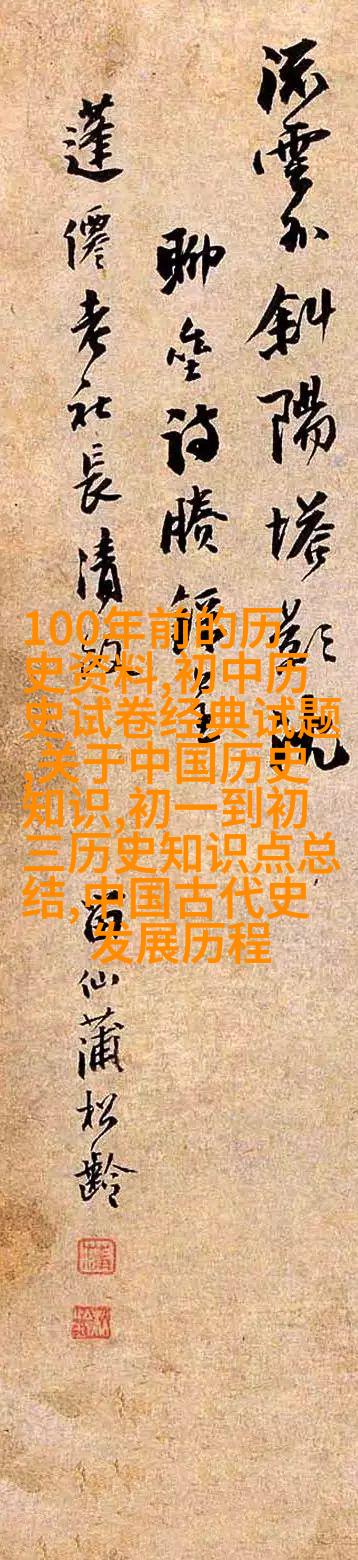 斜陽塔影
聊
蓬僊老社長清
留仙蒲松齡
100年前的历
史资料,初中历
史试卷经典试题
,关于中国历史
知识,初一到初
三历史知识点总
结,中国古代史
发展历程